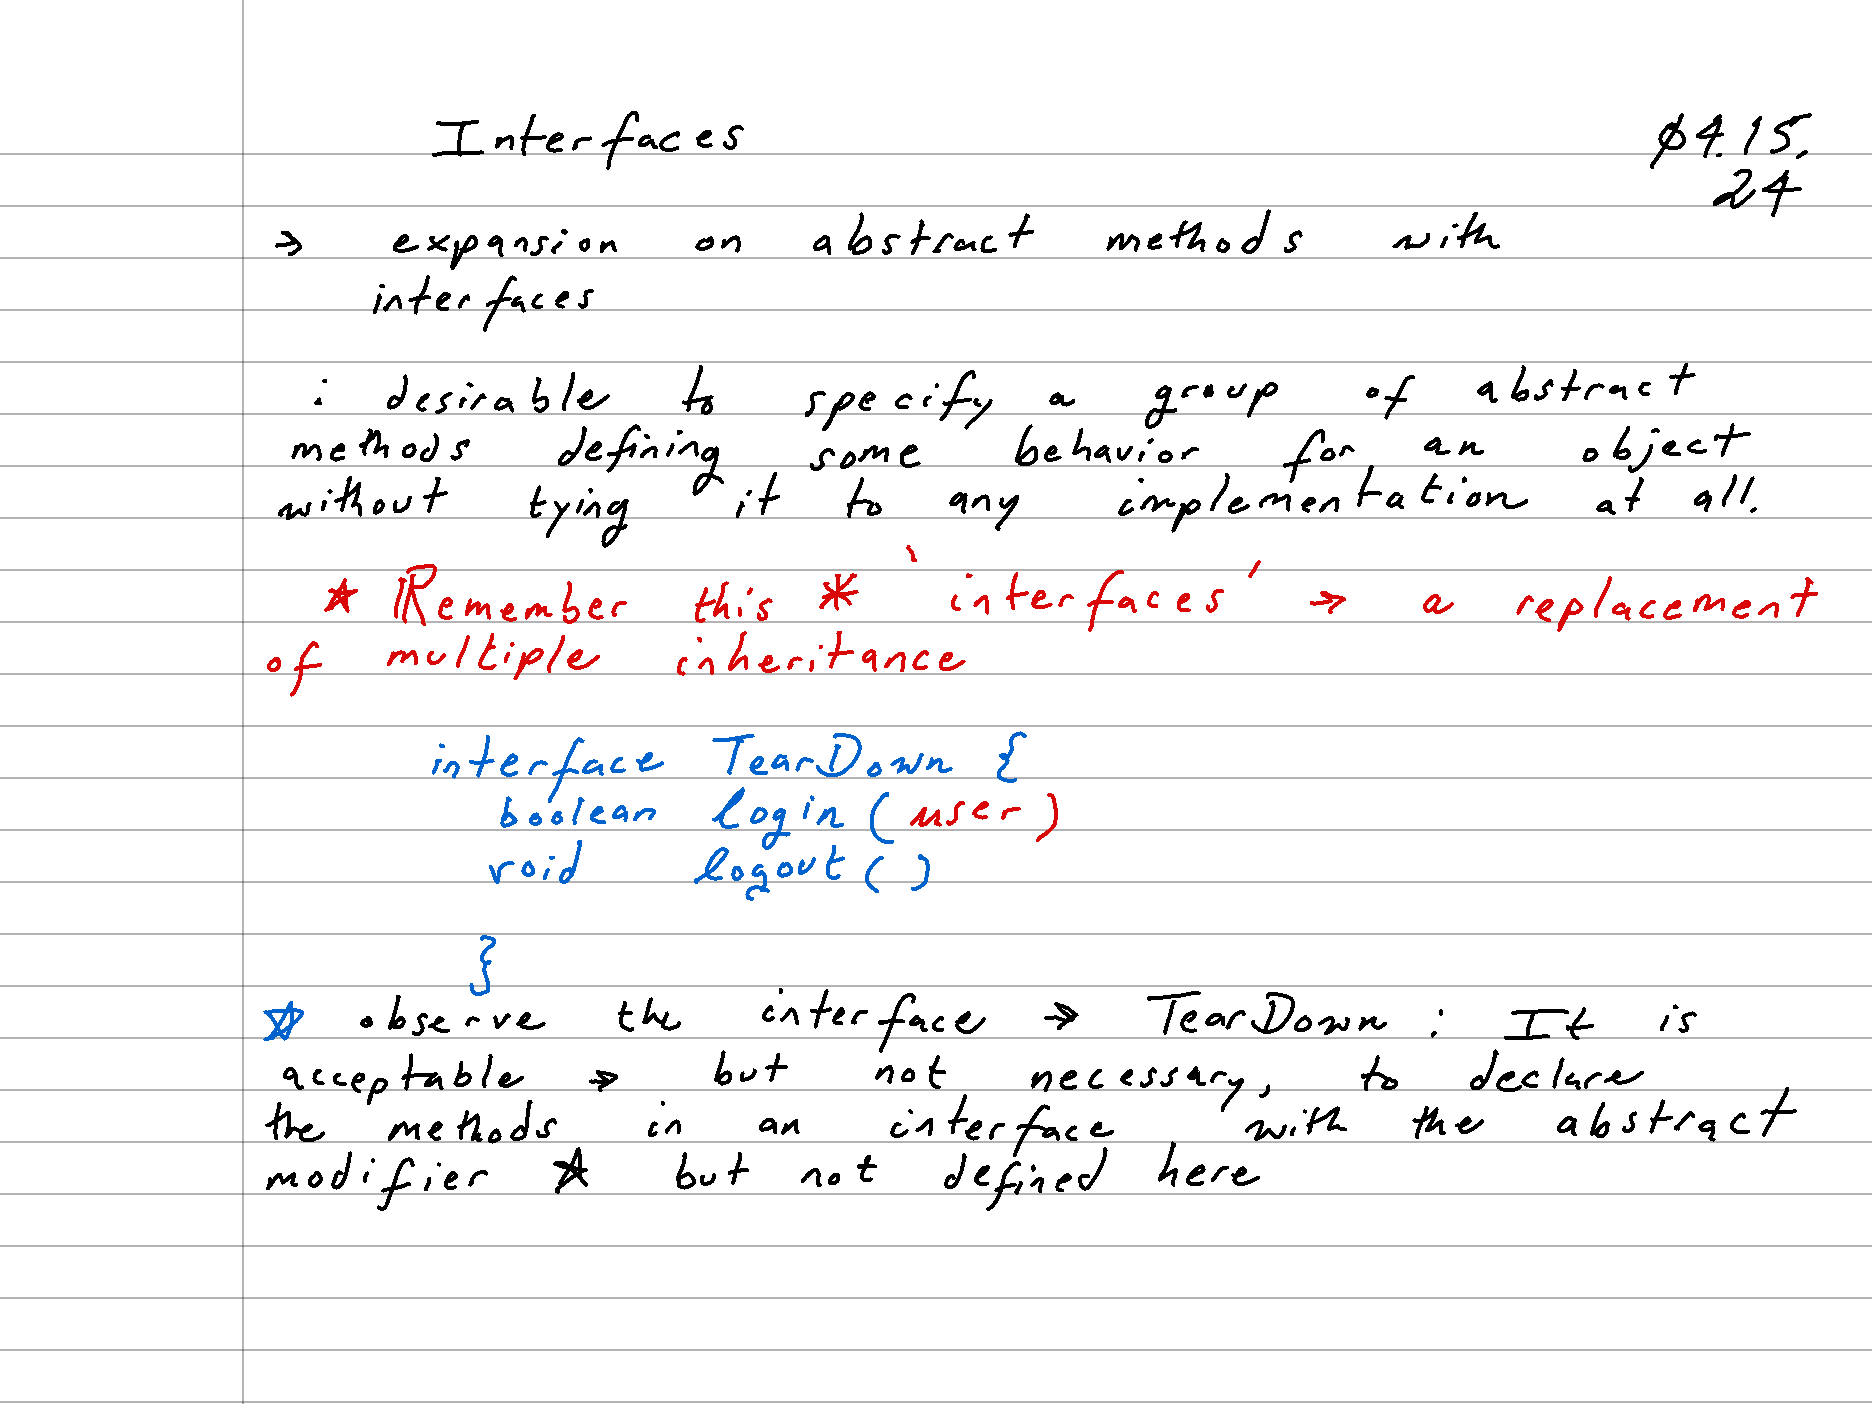 Interfaces
04.15.
24
→ expansion on abstract methods with
interfaces
: desirable to specify a group of abstract
methods defining some behavior for an object
without tying it to any implementation at all.
★ Remember this * 'interfaces' → a replacement
of multiple inheritance
interface TearDown {
boolean login (user)
void logout ( )
}
☆ observe the interface → TearDown : It is
acceptable → but not necessary, to declare
the methods in an interface with the abstract
modifier ★ but not defined here